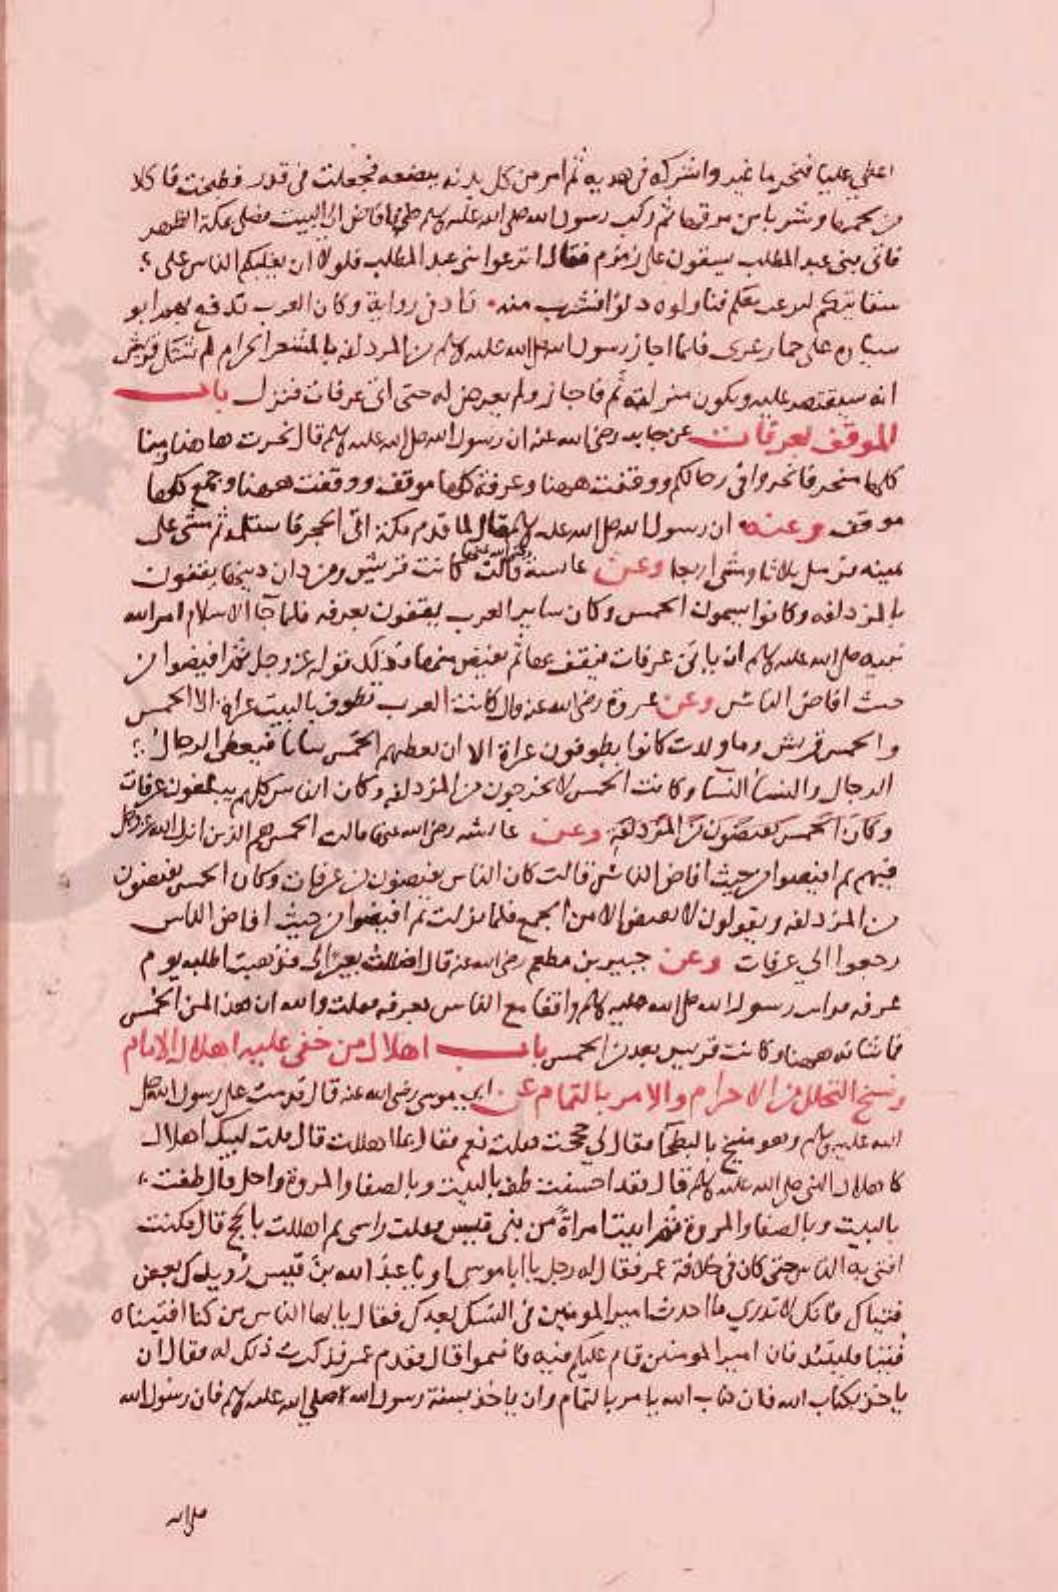 اعطى عليا فنحر ما غبر واشركه في هديه ثم امر من كل بدنه ببضعه فجعلت في قدر فطبخت فاكلا
من لحمها وشربا من مرقها ثم ركب رسول الله صلى الله عليه وسلم فافاض الى البيت فصلى بمكة الظهر
فاتى بنى عبد المطلب يسقون على زمزم فقال انزعوا بنى عبد المطلب فلولا ان يغلبكم الناس على
سقايتكم لنزعت معكم فناولوه دلوا فشرب منه زاد في رواية وكان العرب تدفع بهم ابو
سياره على حمار عرى فلما اجاز رسول الله صلى الله عليه وسلم من المزدلفه بالمشعر الحرام لم تشك قريش
انه سيقتصر عليه ويكون منزله ثم فاجاز ولم يعرض له حتى اتى عرفات فنزل باب
الموقف بعرفات عن جابر رضى الله عنه ان رسول الله صلى الله عليه وسلم قال نحرت هاهنا ومنا
كلها منحر فانحروا في رحالكم ووقفت ههنا وعرفة كلها موقف ووقفت ههنا وجمع كلها
موقف وعنه ان رسول الله صلى الله عليه وسلم لما قدم مكة اتى الحجر فاستلمه ثم مشى على
يمينه فرمل ثلاثا ومشى اربعا وعن عايشة رضى الله عنها قالت كانت قريش ومن دان دينها يقفون
بالمزدلفه وكانوا يسمون الحمس وكان ساير العرب يقفون بعرفه فلما جا الاسلام امر الله
نبيه صلى الله عليه وسلم ان ياتى عرفات فيقف بها ثم يفيض منها فذلك قوله عز وجل ثم افيضوا من
حيث افاض الناس وعن عروة رضى الله عنه قال كانت العرب تطوف بالبيت عراة الا الحمس
والحمس قريش وما ولدت كانوا يطوفون عراة الا ان تعطيهم الحمس ثيابا فيعطى الرجال
الرجال والنسا النسا وكانت الحمس لا يخرجون من المزدلفه وكان الناس كلهم يبلغون عرفات
وكان الحمس يفيضون من المزدلفة وعن عايشه رضى الله عنها قالت الحمس هم الذين انزل الله عز وجل
فيهم ثم افيضوا من حيث افاض الناس قالت كان الناس يفيضون من عرفات وكان الحمس يفيضون
من المزدلفه ويقولون لا نفيض الا من الجمع فلما نزلت ثم افيضوا من حيث افاض الناس
رجعوا الى عرفات وعن جبير بن مطعم رضى الله عنه قال اضللت بعيرا لى فذهبت اطلبه يوم
عرفه فرايت رسول الله صلى الله عليه وسلم واقفا مع الناس بعرفه فقلت والله ان هذا لمن الحمس
فما شانه ههنا وكانت قريش تعد من الحمس باب اهلال من خفى عليه اهلال الامام
ونسخ التحلل من الاحرام والامر بالتمام عن ابى موسى رضى الله عنه قال قدمت على رسول الله صلى
الله عليه وسلم وهو منيخ بالبطحا فقال لي حججت فقلت نعم فقال بما اهللت قال قلت لبيك اهلال
كاهلال النبى صلى الله عليه وسلم قال فقد احسنت طف بالبيت وبالصفا والمروة واحل قال طفت
بالبيت وبالصفا والمروة ثم اتيت امراة من بنى قيس فقلت راسى ثم اهللت بالحج قال فكنت
افتى به الناس حتى كان في خلافة عمر فقال له رجل يا ابا موسى او يا عبد الله بن قيس رويدك بعض
فتياك فانك لا تدري ما احدث امير المومنين في النسك بعدك فقال يا ايها الناس من كنا افتيناه
فتيا فليتئد فان امير المومنين قادم عليكم فبه فاتموا قال فقدم عمر فذكرت ذلك له فقال ان
ياخذ بكتاب الله فان كتاب الله يامر بالتمام وان ياخذ بسنة رسول الله صلى الله عليه وسلم فان رسول الله
صلى الله